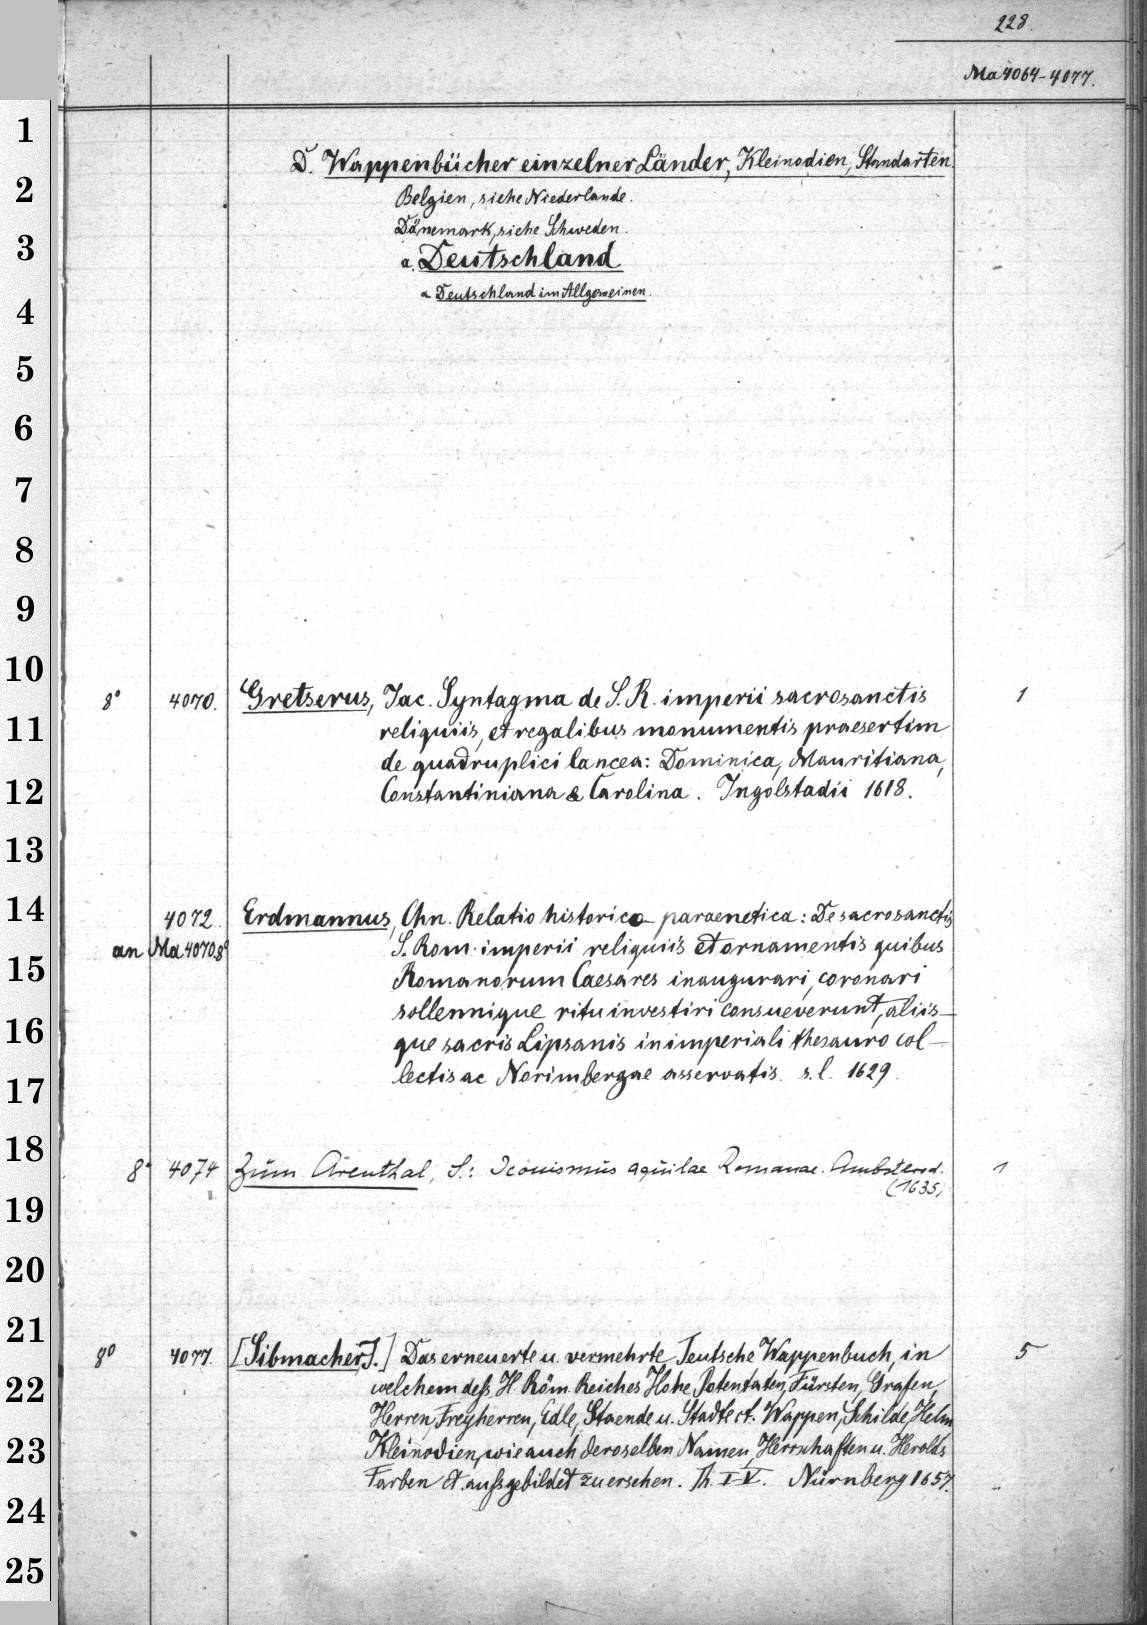 228.
Ma 4064-4077.
D. Wappenbücher einzelner Länder, Kleinodien, Standarten.
Belgien, siehe Niederlande.
Dänemark, siehe Schweden.
a. Deutschland
α Deutschland im Allgemeinen.
8° 4070. Gretserus, Jac. Syntagma de S. R. imperii sacrosanctis 1
reliquiis, et regalibus monumentis praesertim
de quadruplici lancea: Dominica, Mauritiana,
Constantiniana & Carolina. Ingolstadii 1618.
4072. Erdmannus, Chn. Relatio historico paraenetica: De sacrosanctis
an Ma 4070.8° S. Rom. imperii reliquiis et ornamentis quibus
Romanorum Caesares inaugurari, coronari
sollennique ritu investiri consueverunt, aliis-
que sacris Lipsanis in imperiali thesauro col-
lectis ac Norimbergae asservatis. s. l. 1629.
8° 4074 Zum Arenthal, S.: Iconismus aquilae Romanae. Ambsterod. 1
(1635)
8° 4077. [Sibmacher, J.] Das erneuerte u. vermehrte Teutsche Wappenbuch, in 5
welchem deß H. Röm. Reiches Hohe Potentaten, Fürsten, Grafen,
Herren, Freyherren, Edle, Staende u. Städte ct. Wappen, Schilde, Helm
Kleinodien, wie auch deroselben Namen, Herrschaften u. Herolds
Farben ct. aufsgebildet zu ersehen. Th. I-V. Nürnberg 1657.
1
2
3
4
5
6
7
8
9
10
11
12
13
14
15
16
17
18
19
20
21
22
23
24
25